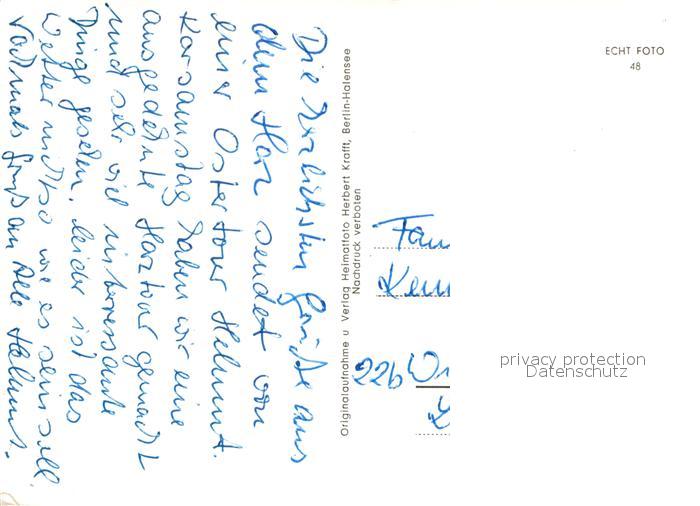 Die herzlichsten Grüße aus
dem Harz sendet von
einer Ostertour Helmut.
Karsamstag haben wir eine
ausgedehnte Harztour gemacht
und sehr viel interessante
Dinge gesehen. leider ist das
Wetter nicht so wie es sein soll
Nochmals Gruß an Alle Helmut.
Originalaufnahme u Verlag Heimatfoto Herbert Krafft, Berlin-Halensee
Nachdruck verboten
ECHT FOTO
48
Fam
22b
privacy protection
Datenschutz